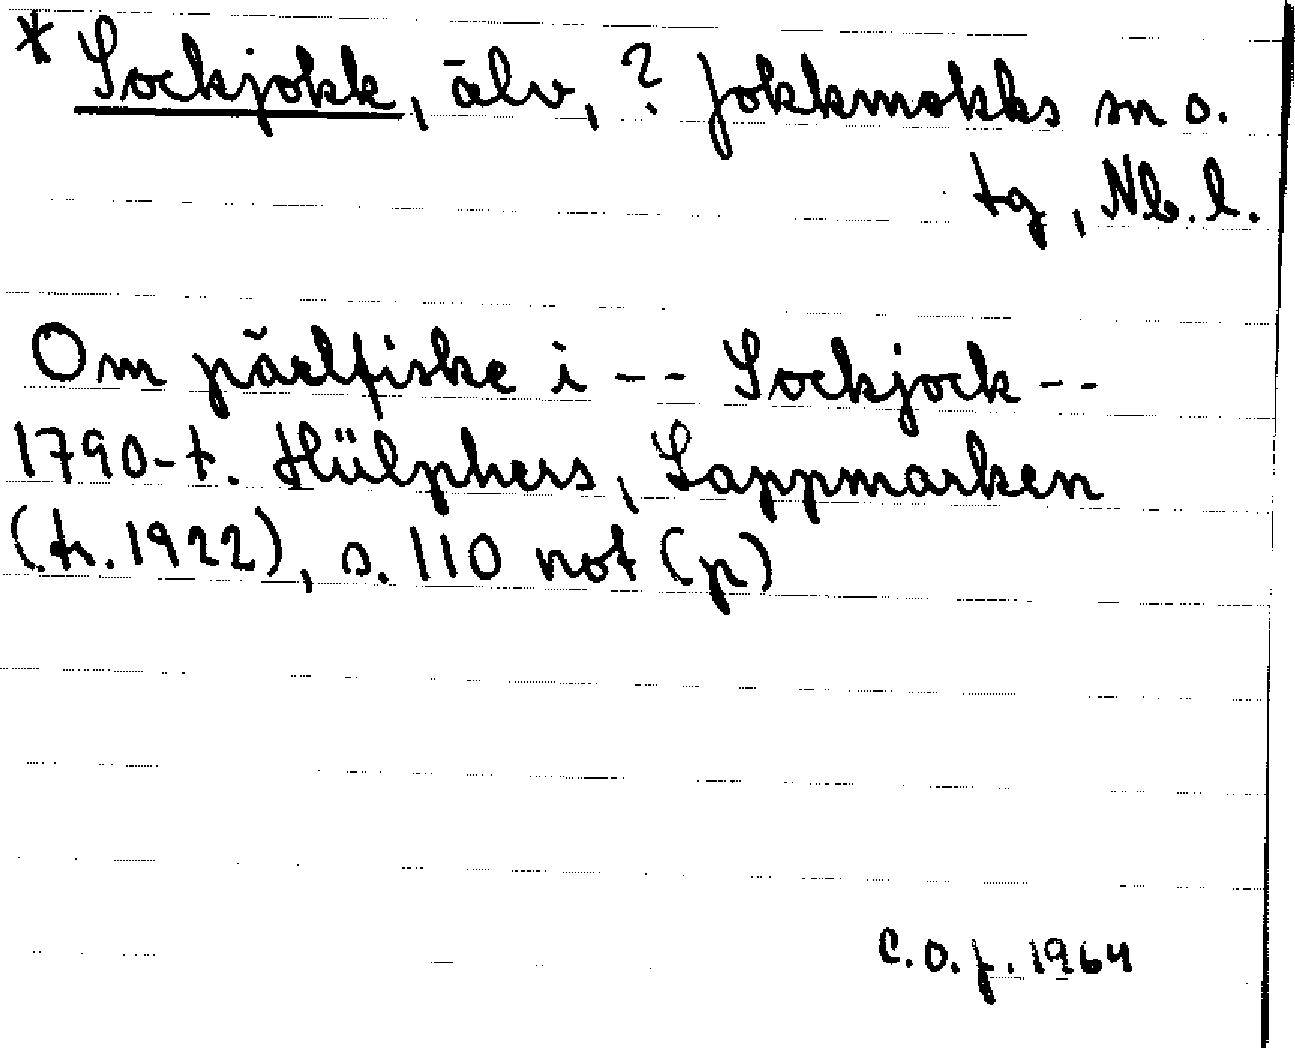 * Sockjokk, älv, ? Jokkmokks sn o.
tg, Nb. l.
Om pärlfiske i -- Sockjock --
1790-t. Hülphers, Lappmarken
(tr. 1922), s. 110 not (p)
C.O.J. 1964